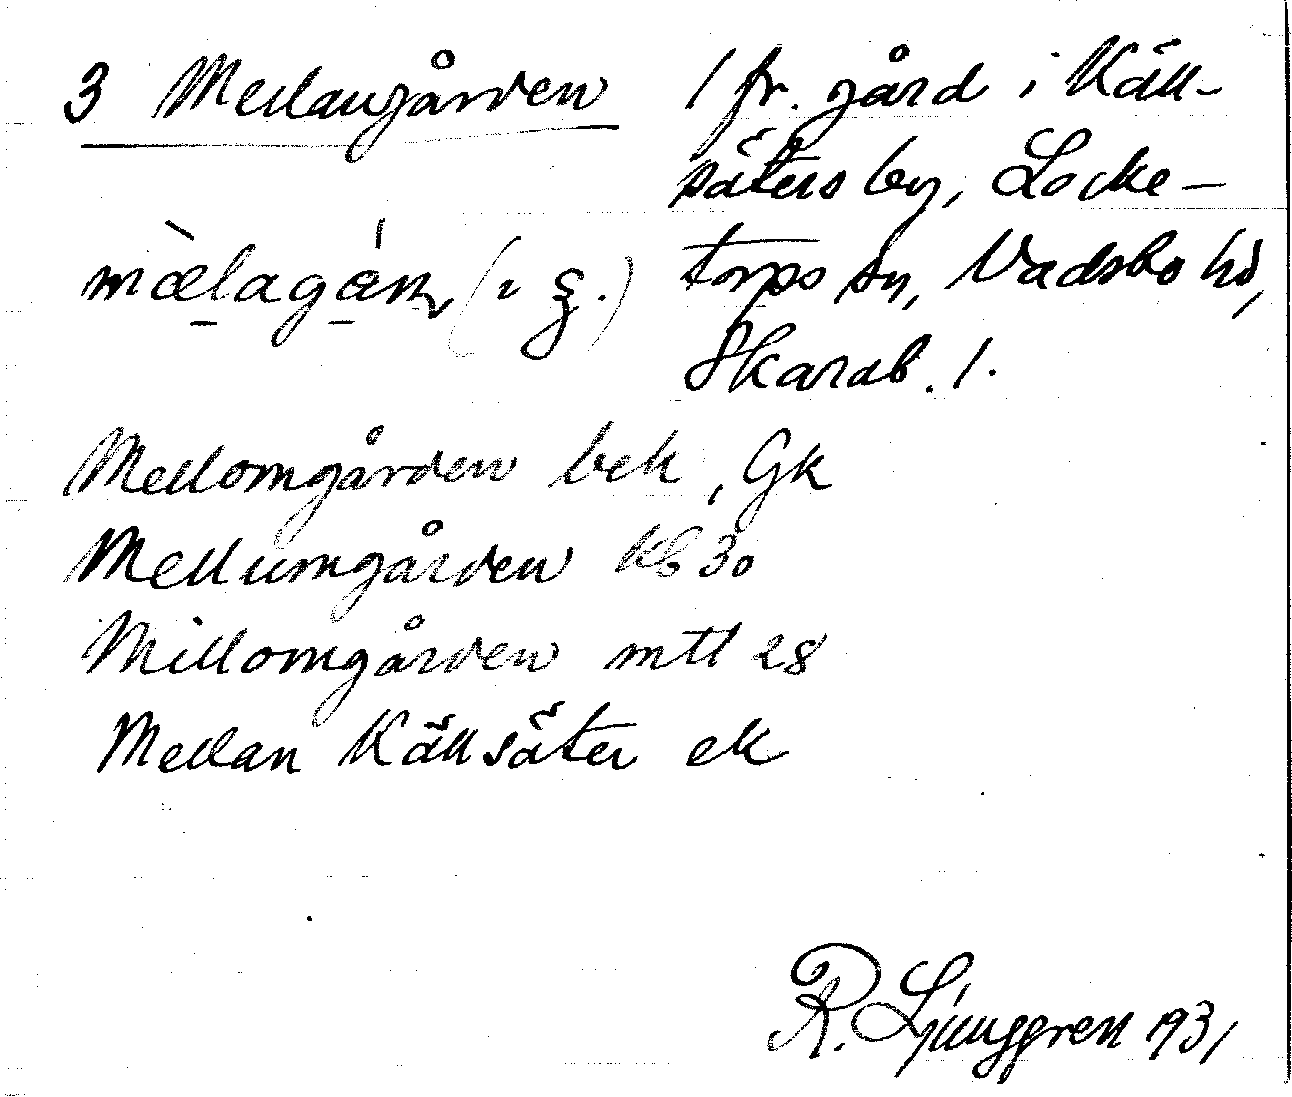 3 Mellangården
1 fr. gård i Käll-
säters by, Locke-
torps sn, Vadsbo hd,
Skarab. l.
Mellomgården bek, Gk
Mellumgården kb 30
Millomgården mtl 28
Mellan Källsäter ek
R. Ljunggren 1931